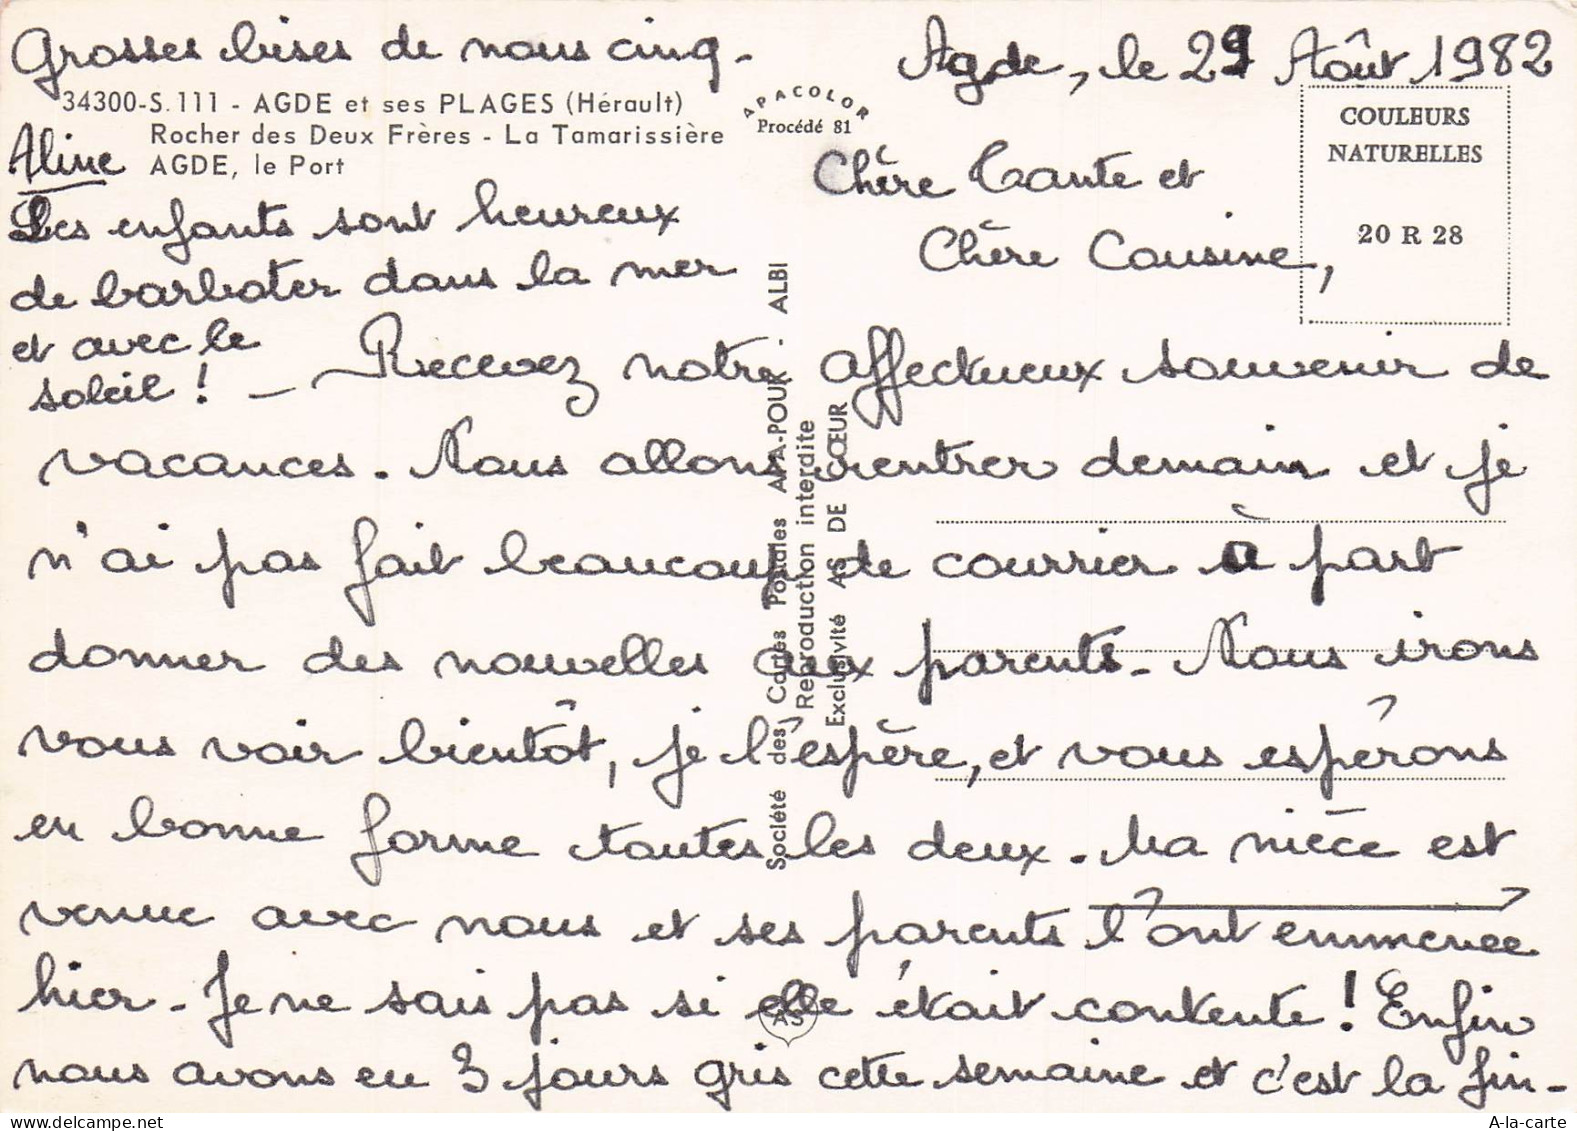 Grosses bises de nous cinq.
Agde, le 29 Août 1982
34300-S.111 - AGDE et ses PLAGES (Hérault)
Rocher des Deux Frères - La Tamarissière
AGDE, le Port
Aline
APACOLOR
Procédé 81
COULEURS
NATURELLES
20 R 28
Chère Tante et
Chère Cousine,
Les enfants sont heureux
de barboter dans la mer
et avec le
soleil ! - Recevez notre affectueux souvenir de
vacances. Nous allons rentrer demain et je
n'ai pas fait beaucoup de courrier à part
donner des nouvelles aux parents. Nous irons
vous voir bientôt, je l'espère, et vous espérons
en bonne forme toutes les deux. Ma nièce est
venue avec nous et ses parents l'ont emmenée
hier. Je ne sais pas si elle était contente ! Enfin
nous avons eu 3 jours gris cette semaine et c'est la fin.
Société des Cartes Postales APA-POUX - ALBI
Reproduction interdite
Exclusivité AS DE CŒUR
AS
A-la-carte